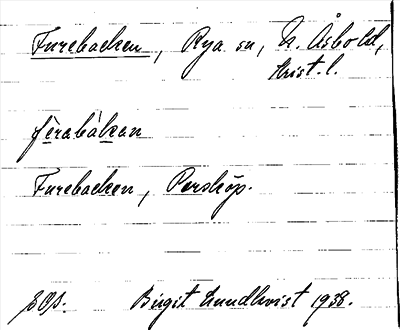 Furebacken, Rya sn, N. Åsbo hd,
Krist. l.
fèrabákan
Furebacken, Perstorp.
Birgit Lundkvist 1938.